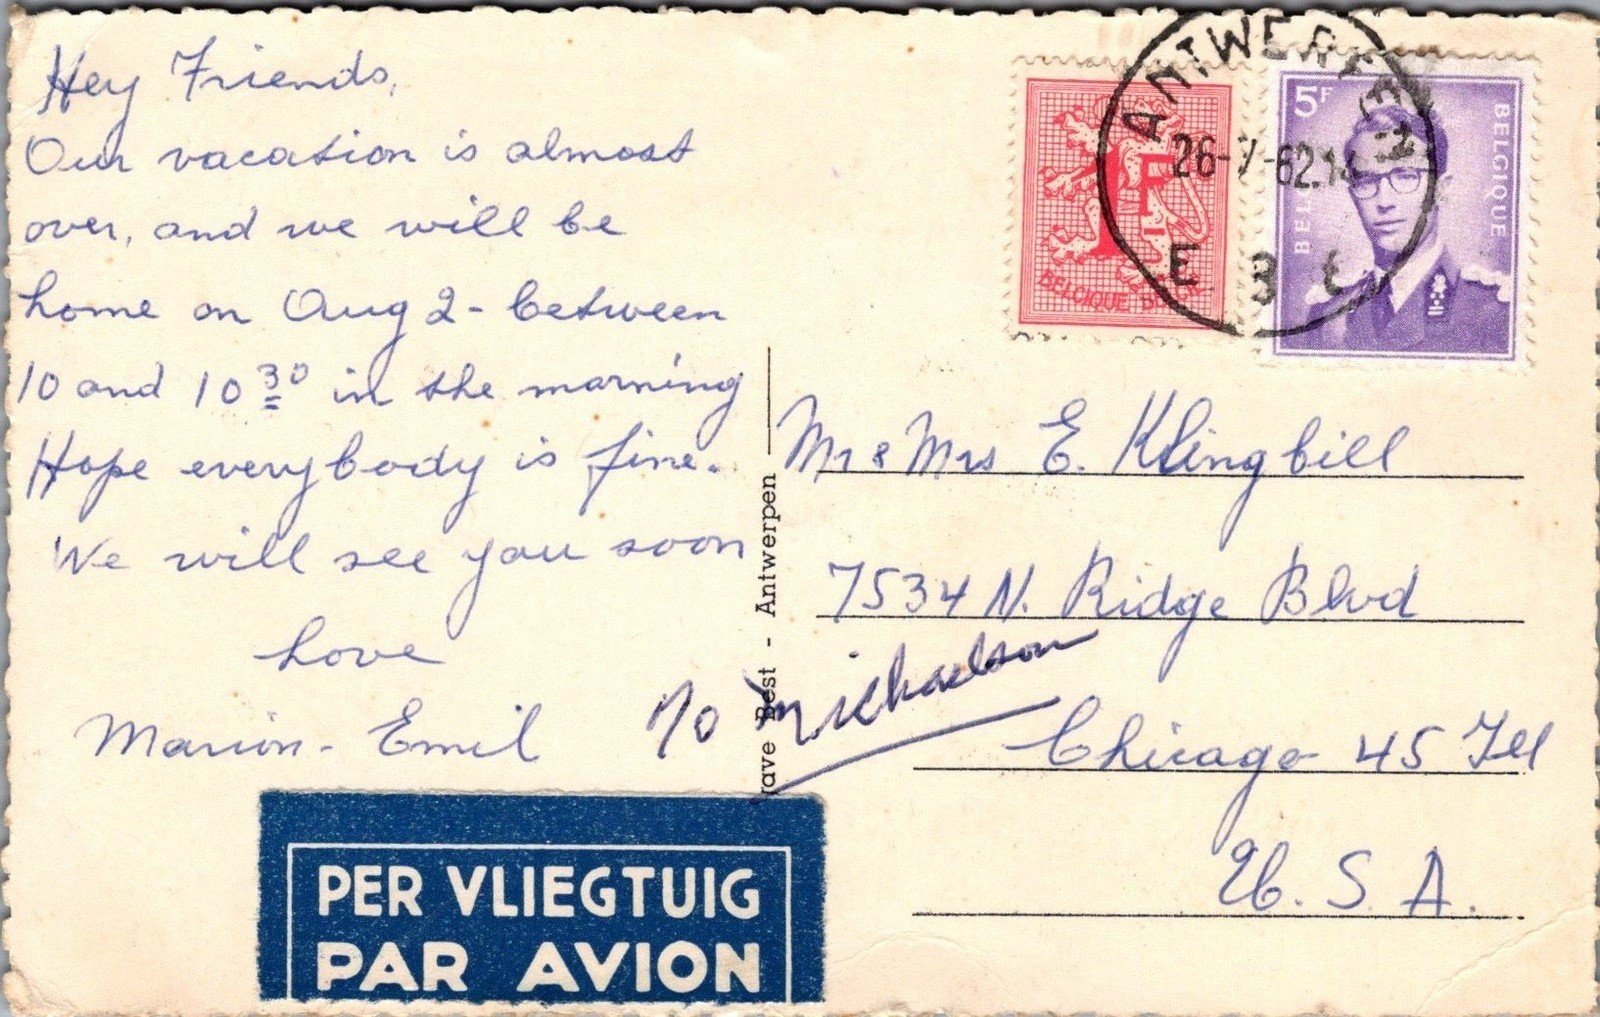 Hey Friends,
Our vacation is almost
over, and we will be
home on Aug 2 - between
10 and 10 30 in the morning
Hope everybody is fine.
We will see you soon
Love
Marion - Emil
PER VLIEGTUIG
PAR AVION
Best - Antwerpen
ANTWERPEN
26-7-62
E 3 E
1F
BELGIQUE
5F
BELGIQUE
Mr & Mrs E. Klingbill
7534 N. Ridge Blvd
% Michaelson
Chicago 45 Ill
U.S.A.